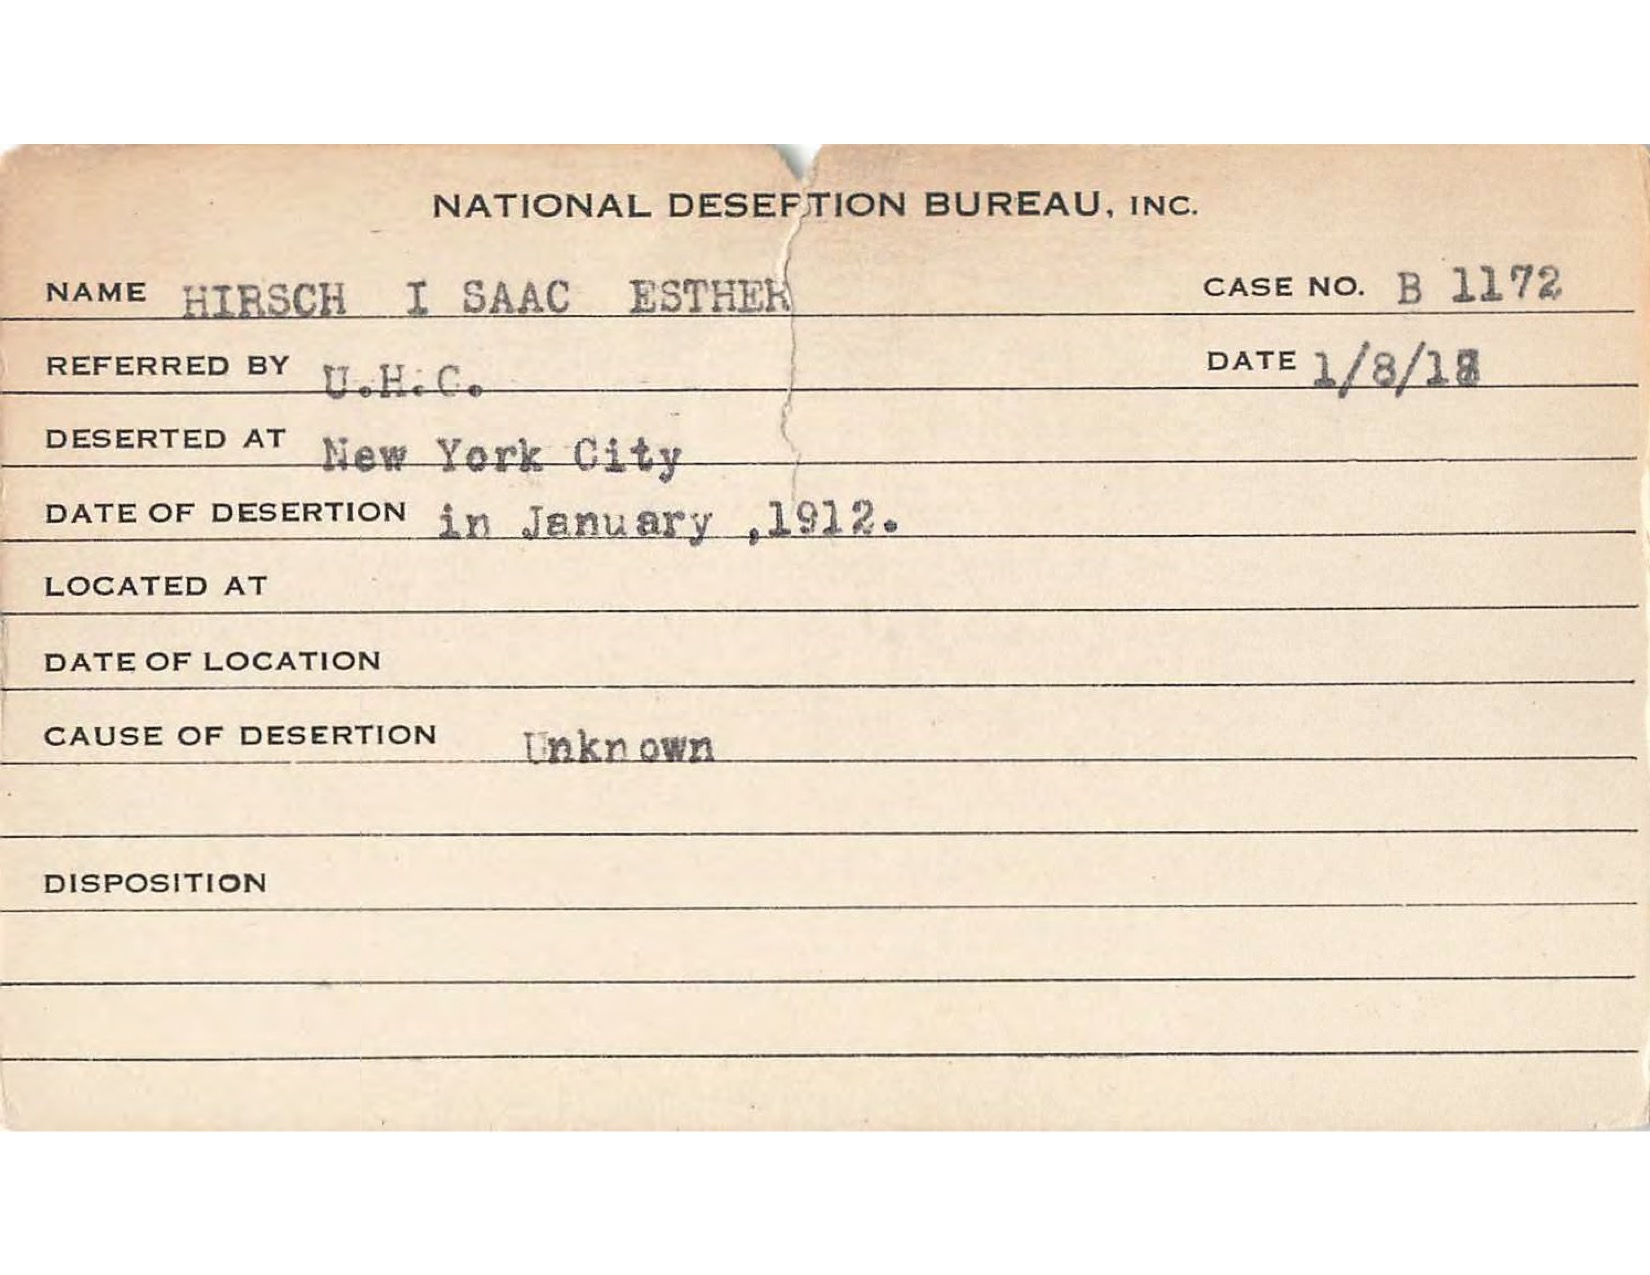 NATIONAL DESERTION BUREAU, INC.
NAME HIRSCH I SAAC ESTHER CASE NO. B 1172
REFERRED BY U.H.C. DATE
DESERTED AT New York City
DATE OF DESERTION in January ,1912.
LOCATED AT
DATE OF LOCATION
CAUSE OF DESERTION Unknown
DISPOSITION